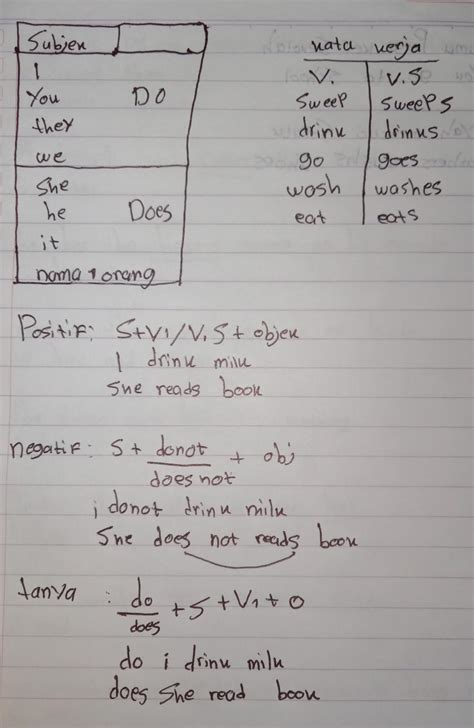 Subjek
I
You DO
they
we
She
he Does
it
nama 1 orang
kata kerja
V. V.S
Sweep Sweeps
drink drinks
go goes
wash washes
eat eats
Positif: S+V1/V.S + objek
I drink milk
She reads book
negatif: S + donot + obj
does not
i donot drink milk
She does not reads book
tanya : do + S + V1 + O
does
do i drink milk
does she read book